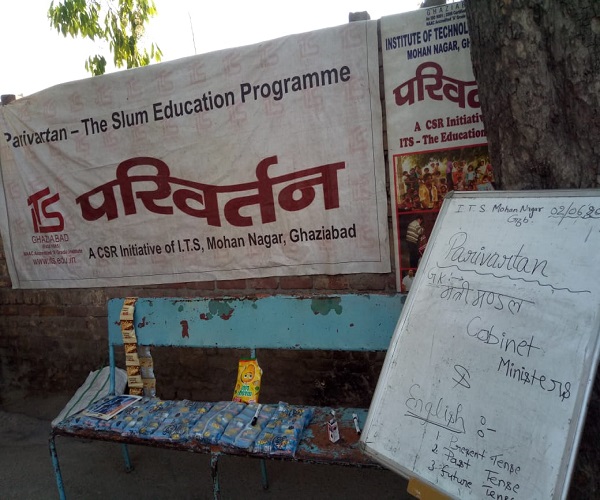 Parivartan – The Slum Education Programme
ITS
GHAZIABAD
www.its.edu.in
परिवर्तन
A CSR Initiative of I.T.S, Mohan Nagar, Ghaziabad
GHAZIABAD
INSTITUTE OF TECHNOLOGY
MOHAN NAGAR, GHAZ
परिवर्त
A CSR Initiativ
ITS - The Education
I.T.S. Mohan Nagar
Gzb
02/06/20
Parivartan
G.K:-
मंत्रीमण्डल
Cabinet
Ministers
&
English :-
1. Present Tense
2. Past Tense
3. Future Tense